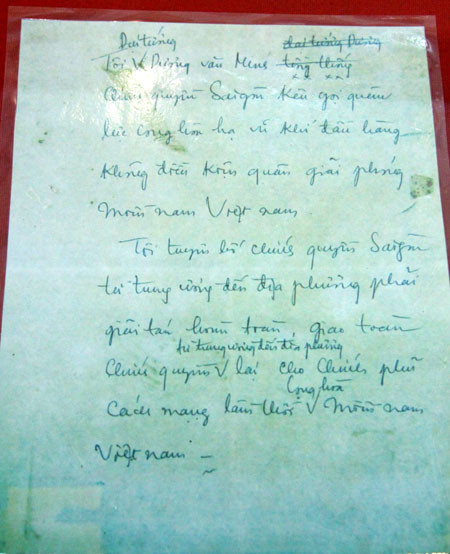 Đại tướng đại tướng Dương
Tôi V Dương văn Minh tổng thống
Chính quyền Saigòn kêu gọi quân
lực cộng hòa hạ vũ khí đầu hàng
không điều kiện quân giải phóng
miền nam Việt nam
Tôi tuyên bố chính quyền Saigòn
từ trung ương đến địa phương phải
giải tán hoàn toàn, giao toàn
từ trung ương đến địa phương
chính quyền V lại cho chính phủ
Cộng hoà
Cách mạng lâm thời V miền nam
Việt nam